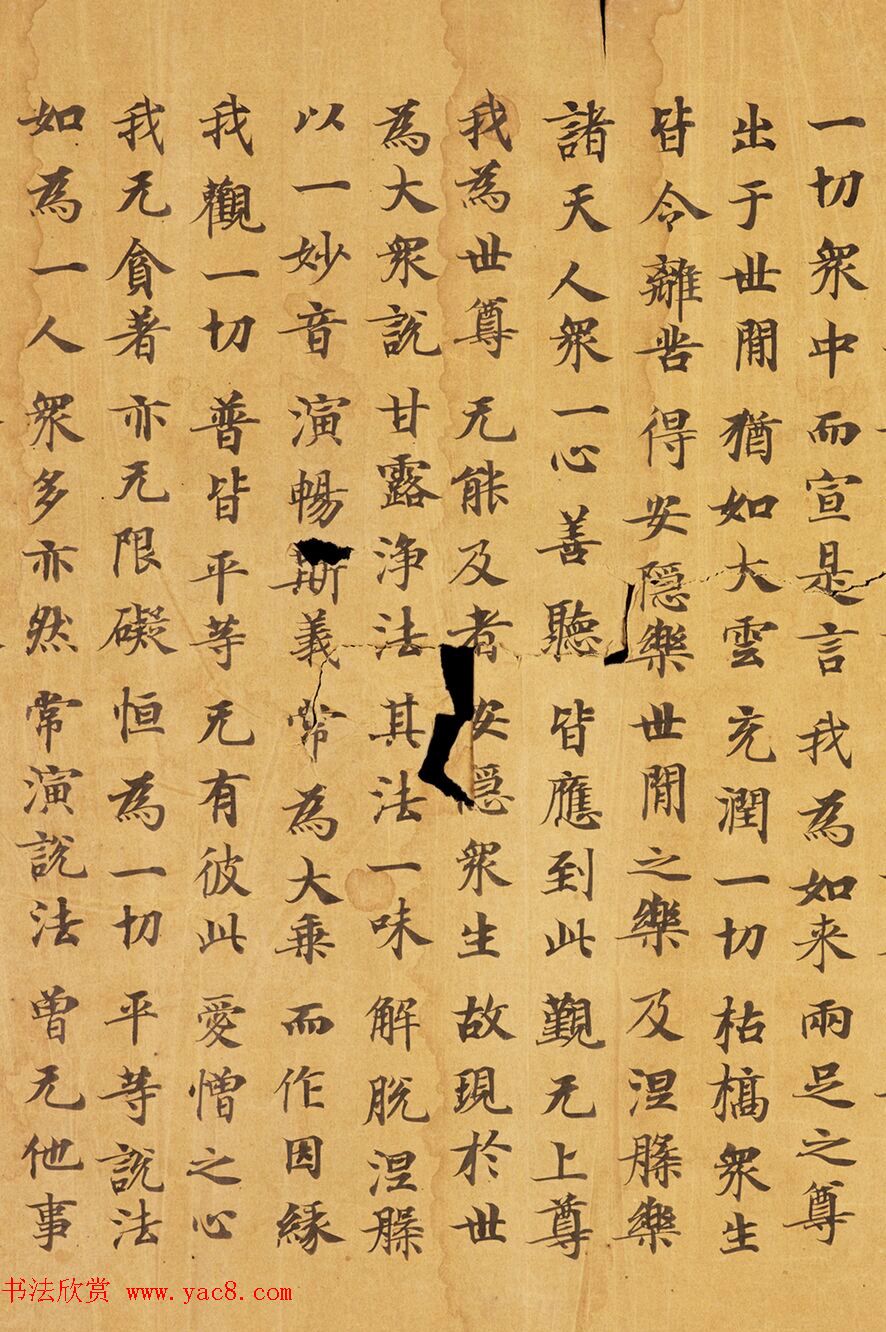 一切衆中 而宣是言 我為如来 兩足之尊
出于世閒 猶如大雲 充潤一切 枯槁衆生
皆令離苦 得安隱樂 世閒之樂 及涅槃樂
諸天人衆 一心善聽 皆應到此 覲无上尊
我為世尊 无能及者 安隱衆生 故現於世
為大衆說 甘露浄法 其法一味 解脫涅槃
以一妙音 演暢斯義 常為大乗 而作因緣
我觀一切 普皆平等 无有彼此 愛憎之心
我无貪著 亦无限礙 恒為一切 平等說法
如為一人 衆多亦然 常演說法 曾无他事
书法欣赏 www.yac8.com